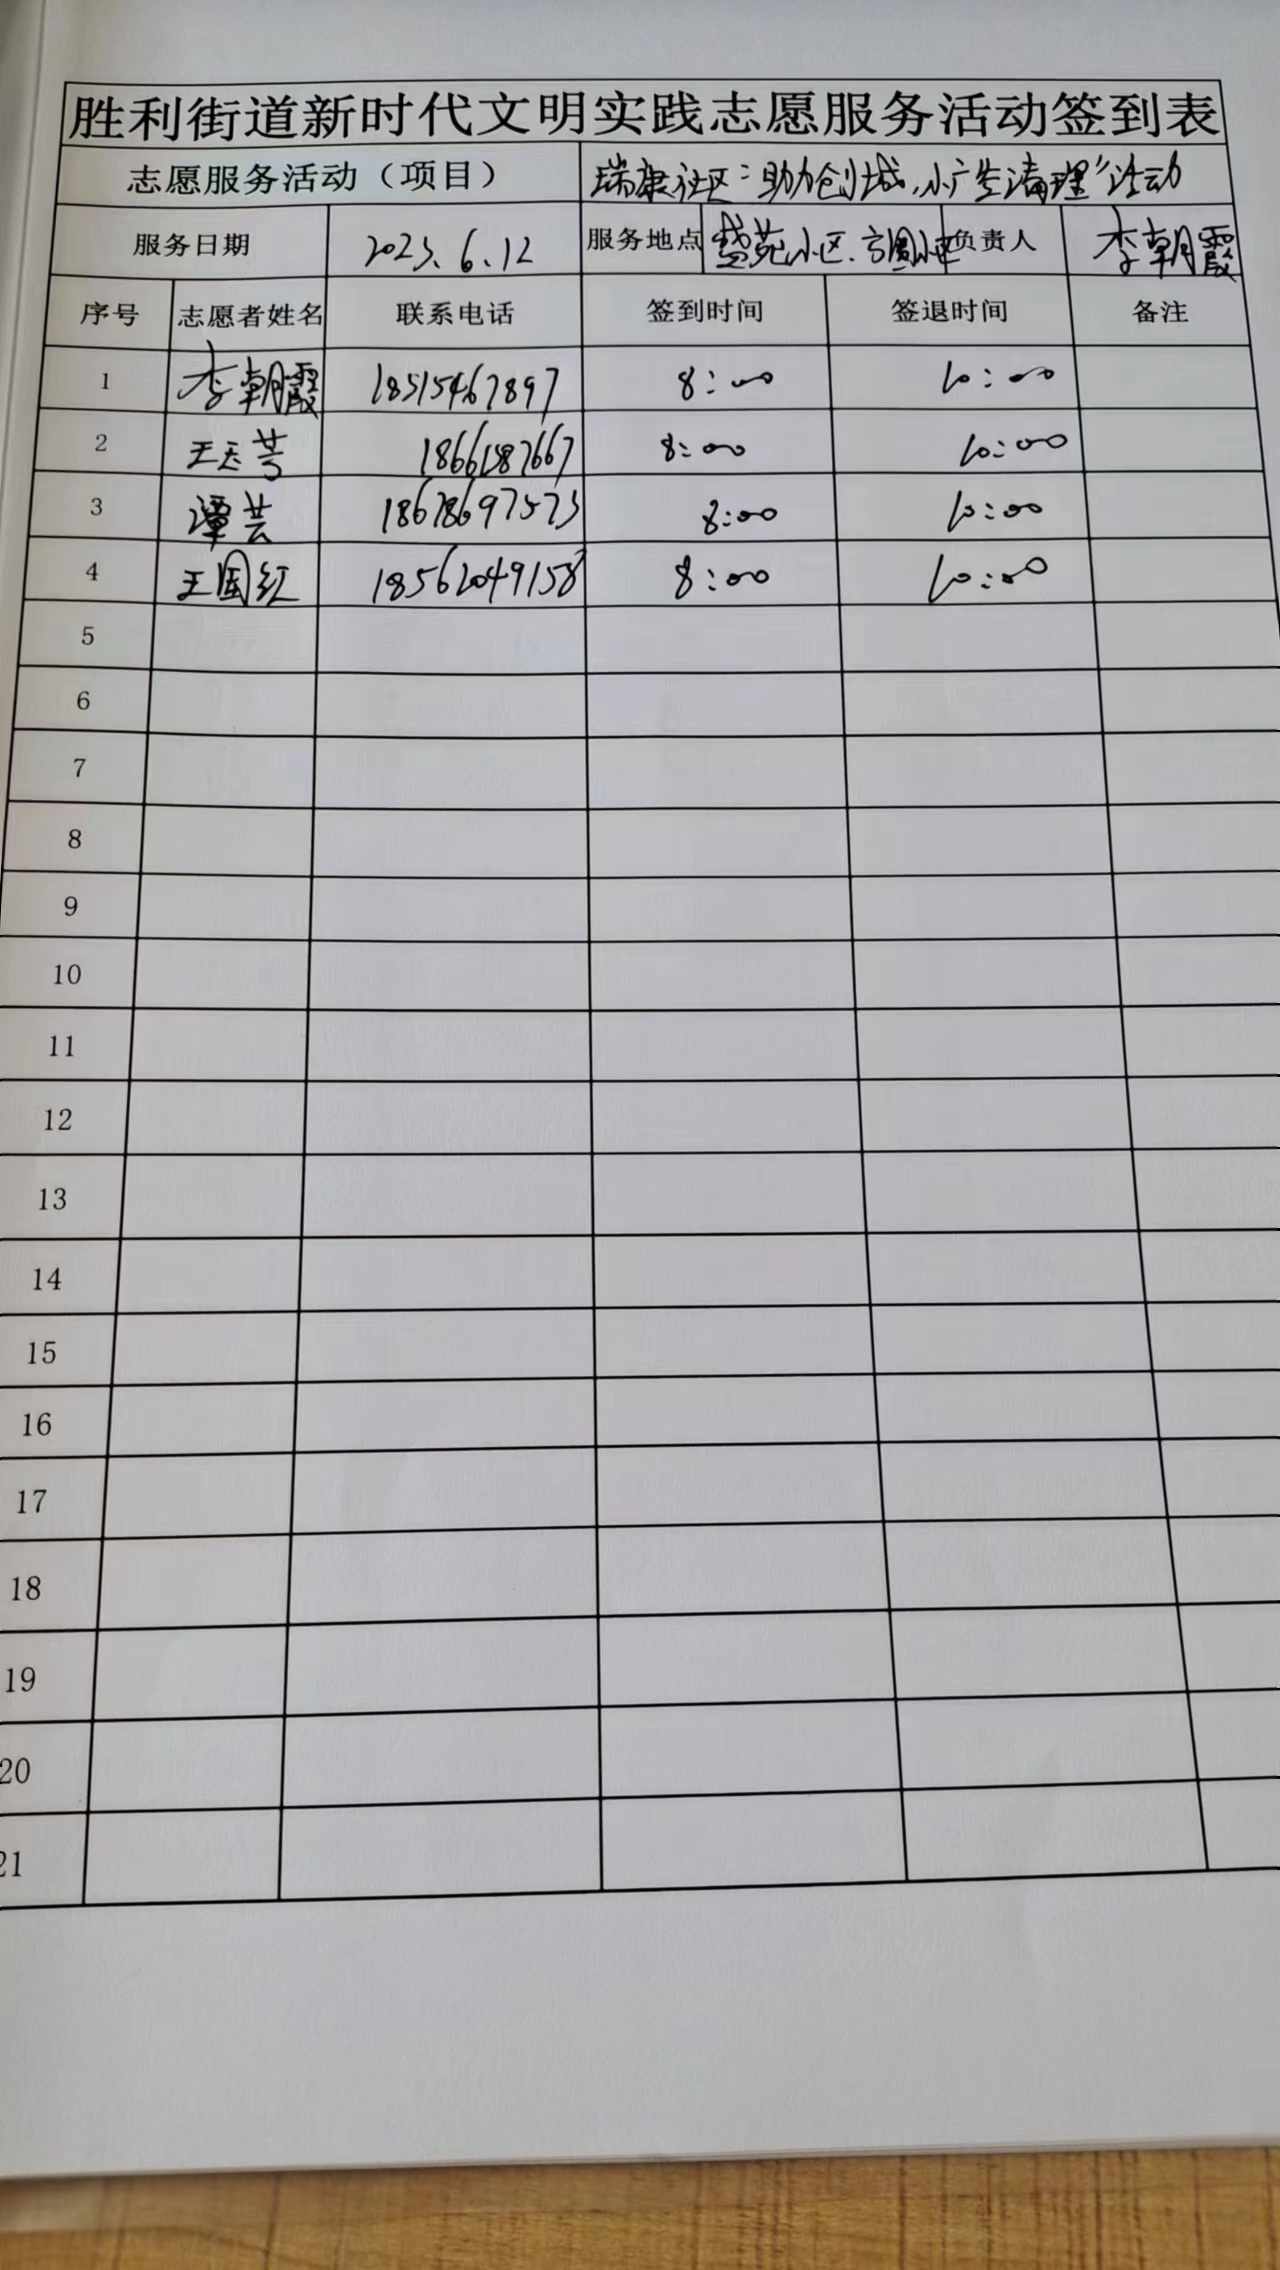 胜利街道新时代文明实践志愿服务活动签到表
志愿服务活动（项目） 瑞康社区“助力创城，小广告清理”活动
服务日期 2023.6.12 服务地点 盛苑小区、方圆小区 负责人 李朝霞
序号 志愿者姓名 联系电话 签到时间 签退时间 备注
1 李朝霞 18515467897 8:00 10:00
2 18661387667 8:00 10:00
3 谭芸 18678697573 8:00 10:00
4 王国红 18562049158 8:00 10:00
5
6
7
8
9
10
11
12
13
14
15
16
17
18
19
20
21